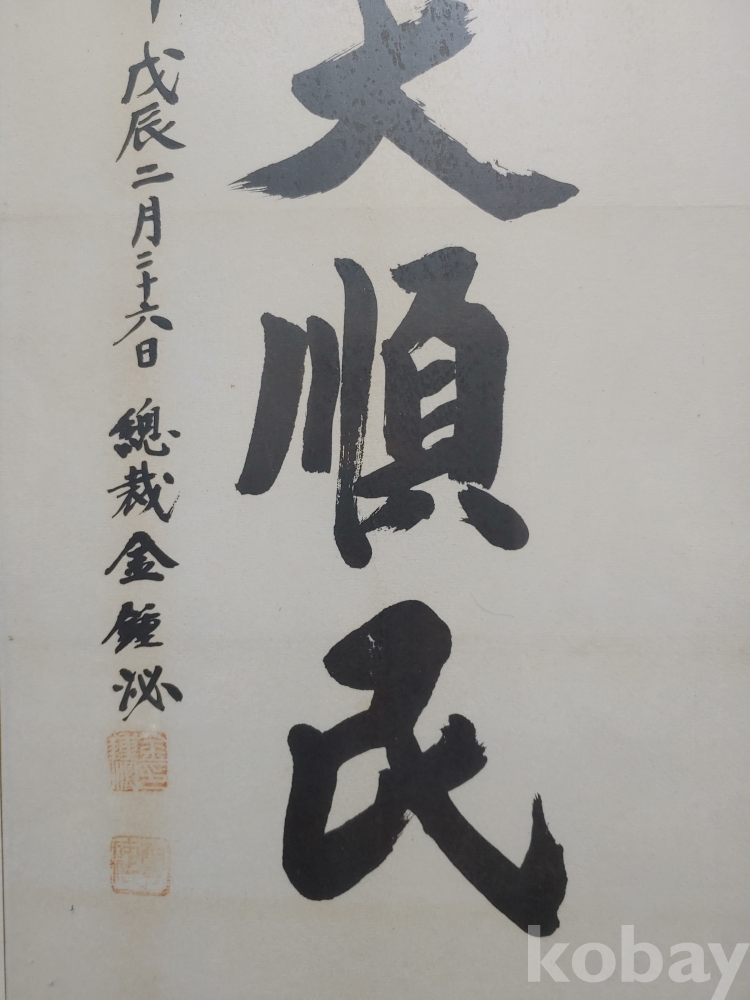 大順民
戊辰二月二十六日 總裁 金鍾泌
kobay